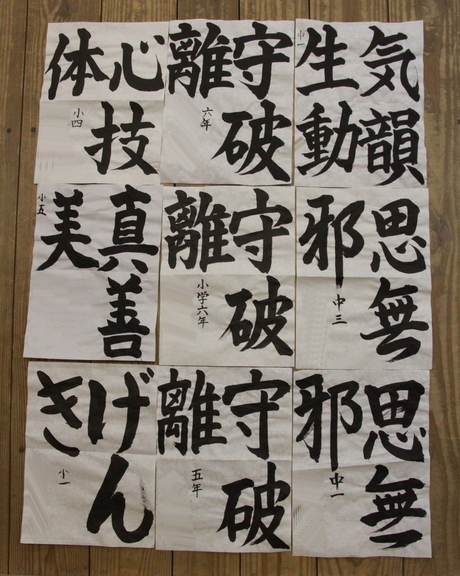 気韻
生動
中一
守破
離
六年
心技
体
小四
思無
邪
中三
守破
離
小学六年
真善
美
小五
思無
邪
中一
守破
離
五年
げん
き
小一